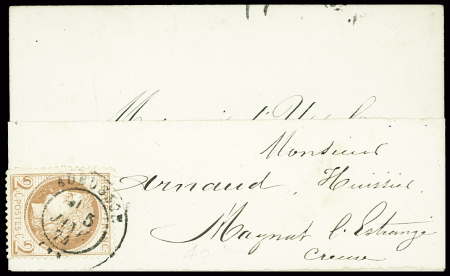 Monsieur
Arnaud, Huissier
Magnat l'Etrange
Creuse
AUBUSSON
5
2
POSTES
2